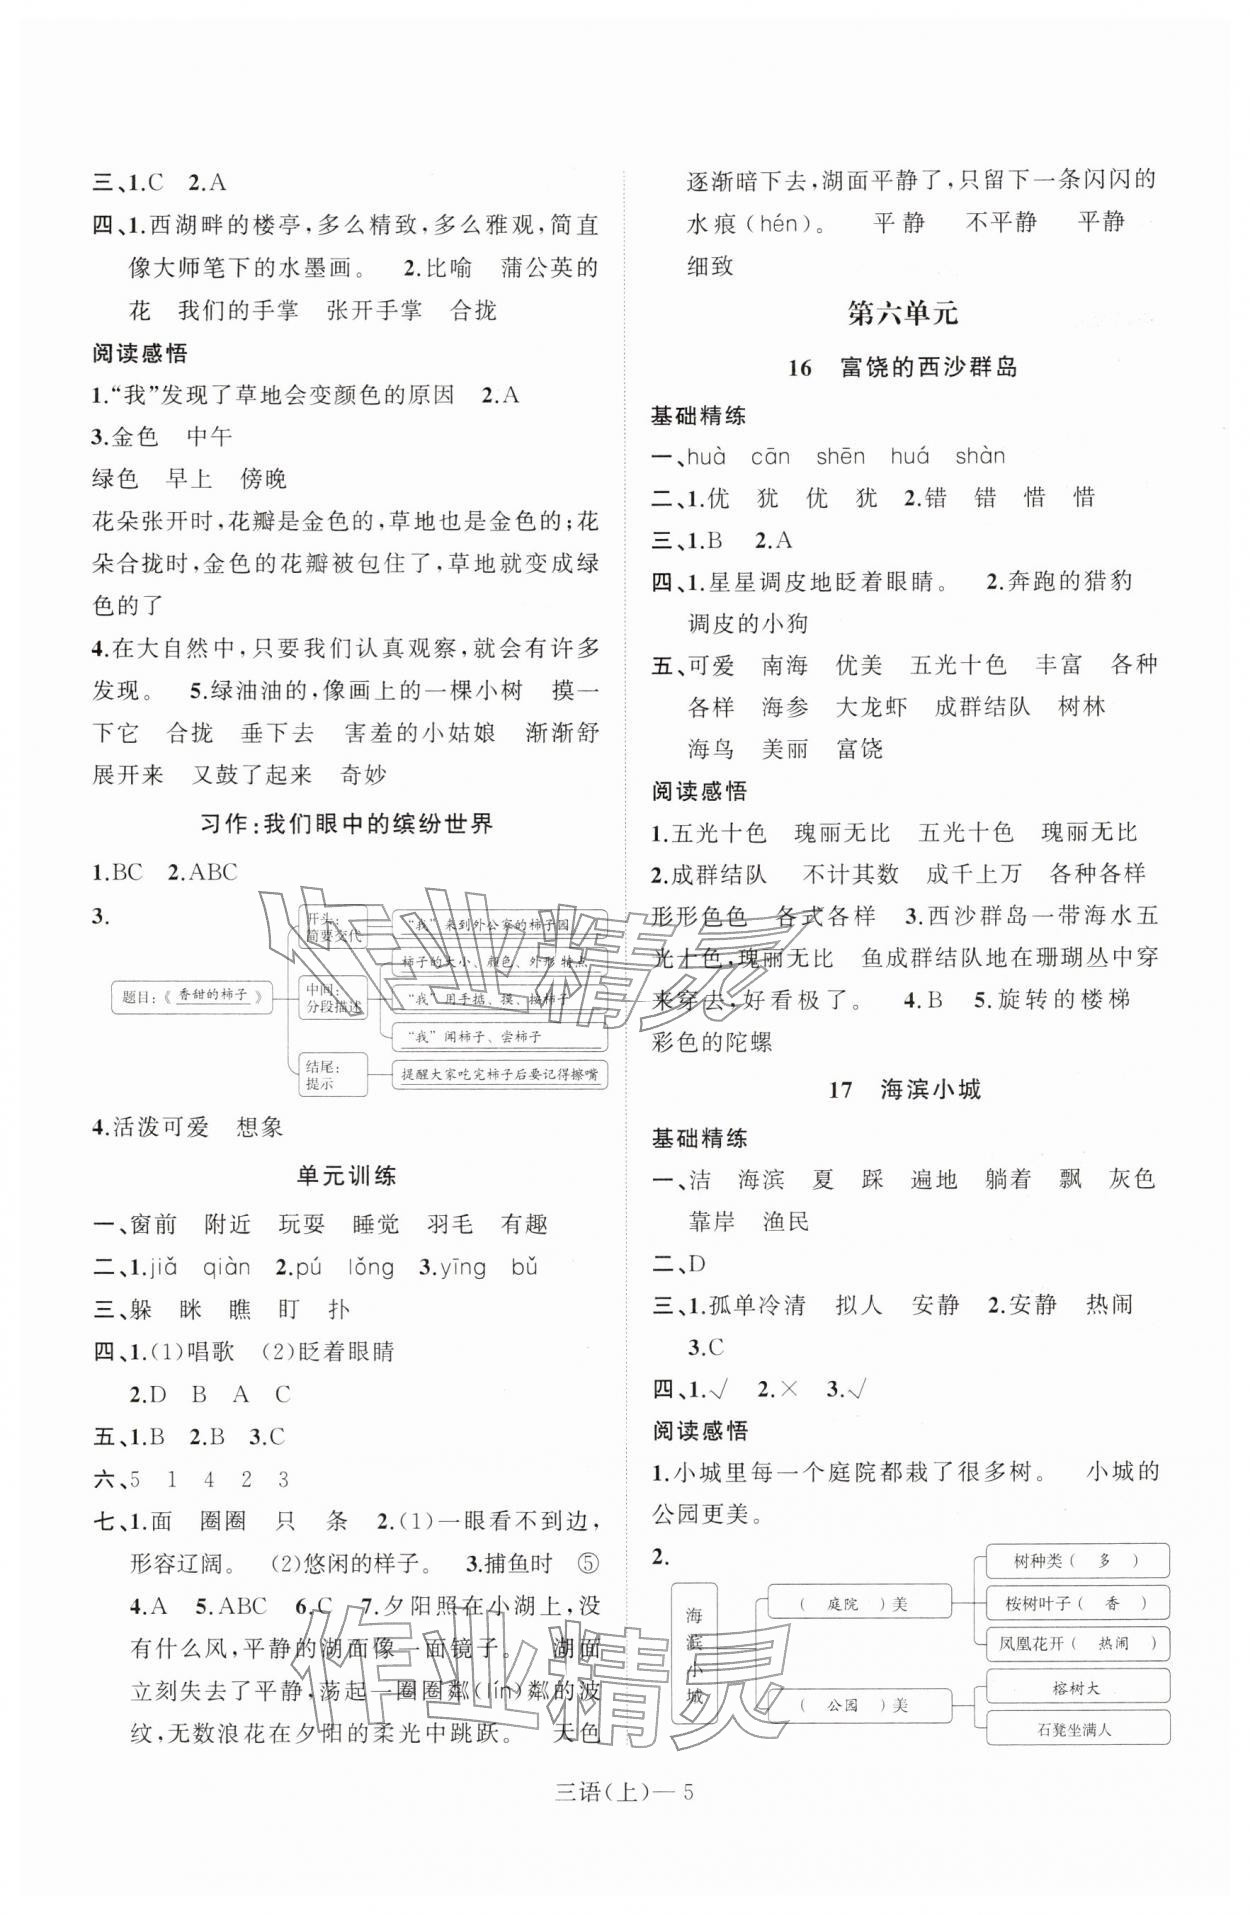 三、1.C  2.A
四、1.西湖畔的楼亭,多么精致,多么雅观,简直
像大师笔下的水墨画。  2.比喻  蒲公英的
花  我们的手掌  张开手掌  合拢
阅读感悟
1.“我”发现了草地会变颜色的原因  2.A
3.金色  中午
绿色  早上  傍晚
花朵张开时,花瓣是金色的,草地也是金色的;花
朵合拢时,金色的花瓣被包住了,草地就变成绿
色的了
4.在大自然中,只要我们认真观察,就会有许多
发现。  5.绿油油的,像画上的一棵小树  摸一
下它  合拢  垂下去  害羞的小姑娘  渐渐舒
展开来  又鼓了起来  奇妙
习作:我们眼中的缤纷世界
1.BC  2.ABC
3.
题目:《 香甜的柿子 》
开头:
简要交代
“我”来到外公家的柿子园
中间:
分段描述
柿子的大小、颜色、外形特点
“我”用手掂、摸、按柿子
“我”闻柿子、尝柿子
结尾:
提示
提醒大家吃完柿子后要记得擦嘴
4.活泼可爱  想象
单元训练
一、窗前  附近  玩耍  睡觉  羽毛  有趣
二、1.jiǎ  qiàn  2.pú  lǒng  3.yīng  bǔ
三、躲  眯  瞧  盯  扑
四、1.(1)唱歌  (2)眨着眼睛
2.D  B  A  C
五、1.B  2.B  3.C
六、5  1  4  2  3
七、1.面  圈圈  只  条  2.(1)一眼看不到边,
形容辽阔。  (2)悠闲的样子。  3.捕鱼时  ⑤
4.A  5.ABC  6.C  7.夕阳照在小湖上,没
有什么风,平静的湖面像一面镜子。  湖面
立刻失去了平静,荡起一圈圈粼(lín)粼的波
纹,无数浪花在夕阳的柔光中跳跃。  天色
逐渐暗下去,湖面平静了,只留下一条闪闪的
水痕(hén)。  平静  不平静  平静
细致
第六单元
16  富饶的西沙群岛
基础精练
一、huà  cān  shēn  huá  shàn
二、1.优  犹  优  犹  2.错  错  惜  惜
三、1.B  2.A
四、1.星星调皮地眨着眼睛。  2.奔跑的猎豹
调皮的小狗
五、可爱  南海  优美  五光十色  丰富  各种
各样  海参  大龙虾  成群结队  树林
海鸟  美丽  富饶
阅读感悟
1.五光十色  瑰丽无比  五光十色  瑰丽无比
2.成群结队  不计其数  成千上万  各种各样
形形色色  各式各样  3.西沙群岛一带海水五
光十色,瑰丽无比  鱼成群结队地在珊瑚丛中穿
来穿去,好看极了。  4.B  5.旋转的楼梯
彩色的陀螺
17  海滨小城
基础精练
一、洁  海滨  夏  踩  遍地  躺着  飘  灰色
靠岸  渔民
二、D
三、1.孤单冷清  拟人  安静  2.安静  热闹
3.C
四、1.√  2.×  3.√
阅读感悟
1.小城里每一个庭院都栽了很多树。  小城的
公园更美。
2.
海滨小城
( 庭院 )美
树种类( 多 )
桉树叶子( 香 )
凤凰花开( 热闹 )
( 公园 )美
榕树大
石凳坐满人
三语(上)— 5
作业精灵
作业精灵